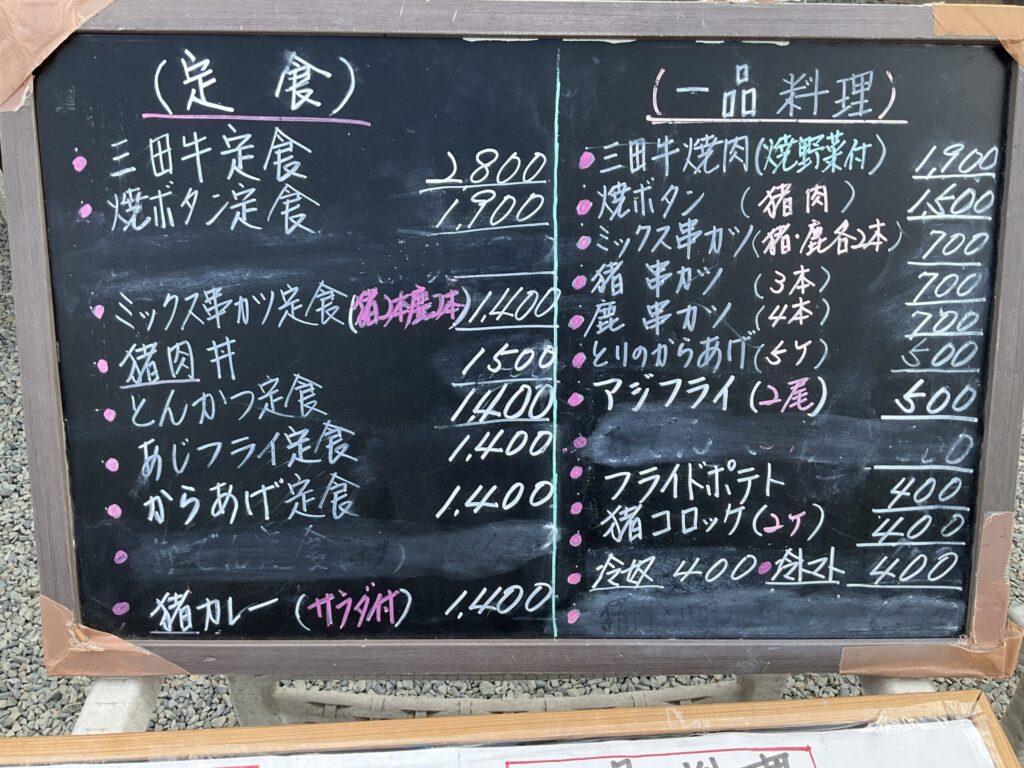 (定食)
三田牛定食 2,800
焼ボタン定食 1,900
ミックス串カツ定食(猪2本鹿2本) 1,400
猪肉丼 1,500
とんかつ定食 1,400
あじフライ定食 1,400
からあげ定食 1,400
猪カレー(サラダ付) 1,400
(一品料理)
三田牛焼肉(焼野菜付) 1,900
焼ボタン(猪肉) 1,500
ミックス串カツ(猪・鹿各2本) 700
猪串カツ(3本) 700
鹿串カツ(4本) 700
とりのからあげ(5ケ) 500
アジフライ(2尾) 500
フライドポテト 400
猪コロッケ(2ケ) 400
冷奴 400 • 冷トマト 400